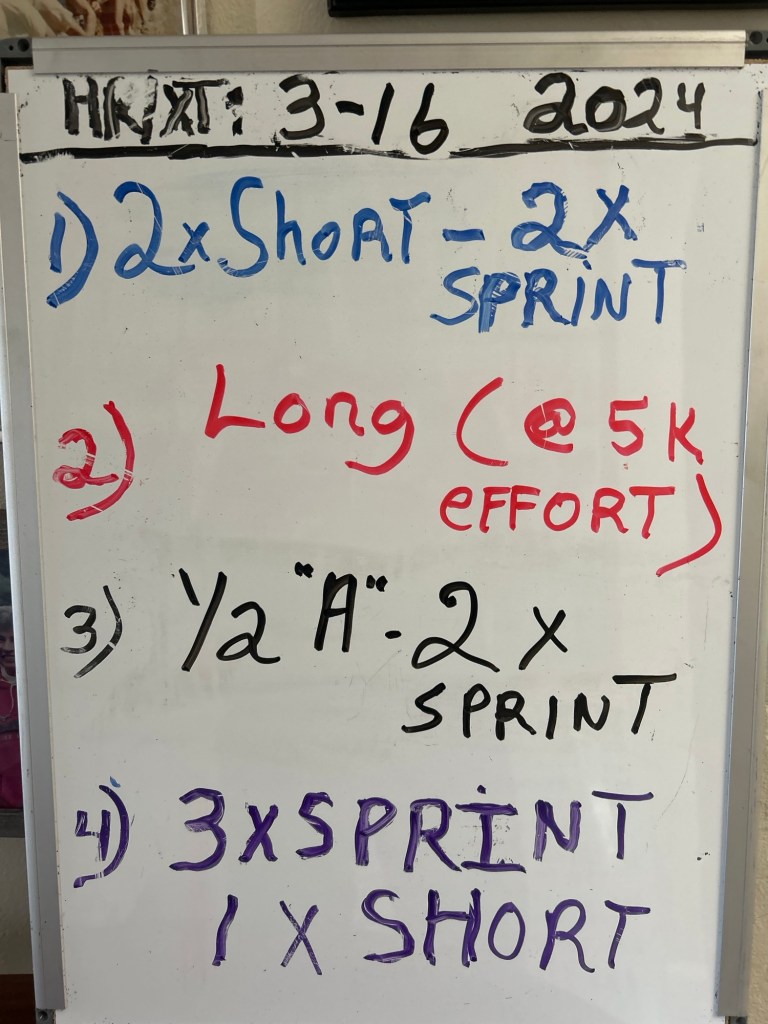 HR/XT: 3-16 2024
1) 2x Short - 2x
SPRINT
2) Long (@ 5K
EFFORT)
3) 1/2 "A" - 2 x
SPRINT
4) 3xSPRINT
1 x SHORT